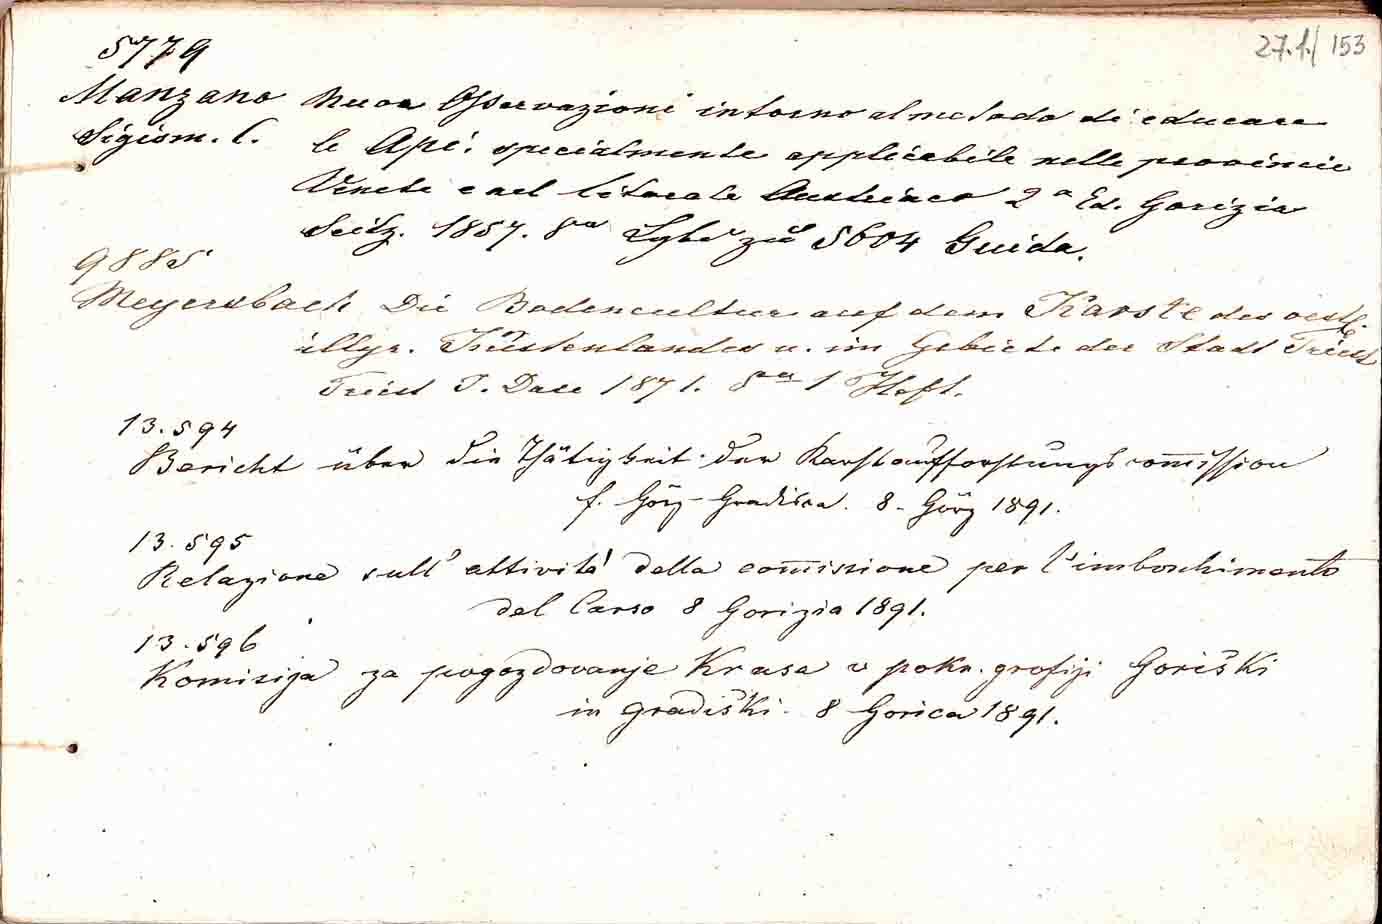 27.1./153
5779
Manzano Nuova Osservazioni intorno al metodo di educare
Sigism. C. le Api: specialmente applicabile nelle provincie
Venete e nel litorale Austriaco 2a Ed. Gorizia
Seitz. 1857. 8vo zu 5604 Guida.
9885
Meyersbach Die Bodencultur auf dem Karste des oest.
illyr. Küstenlandes u. im Gebiete der Stadt Triest
Triest J. Dase 1871. 8vo 1 Heft.
13.594
Bericht über die Thätigkeit der Karstaufforstungscom̅ission
f. Görz-Gradisca. 8. Görz 1891.
13.595
Relazione sull' attivitá della com̅issione per l'imboschimento
del Carso 8 Gorizia 1891.
13.596
Komisija za pogozdovanje Krasa v pokn. grofiji Goriški
in gradiški. 8 Gorica 1891.